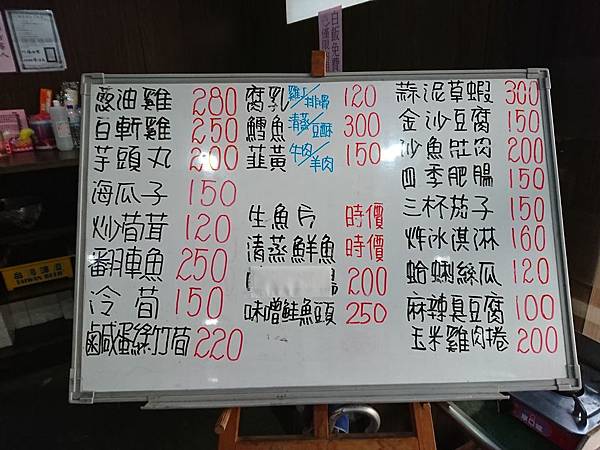 白飯免費
蔥油雞 280
白斬雞 250
芋頭丸 200
海瓜子 150
炒菇茸 120
翻車魚 250
冷筍 150
鹹蛋絲竹筍 220
腐乳 雞丁/排骨 120
鱈魚 清蒸/豆酥 300
韮黃 牛肉/羊肉 150
生魚片 時價
清蒸鮮魚 時價
200
味噌鮭魚頭 250
蒜泥草蝦 300
金沙豆腐 150
沙魚肚肉 200
四季肥腸 150
三杯茄子 150
炸冰淇淋 160
蛤蜊絲瓜 120
麻辣臭豆腐 100
玉米雞肉捲 200
台灣啤酒
TAIWAN BEER